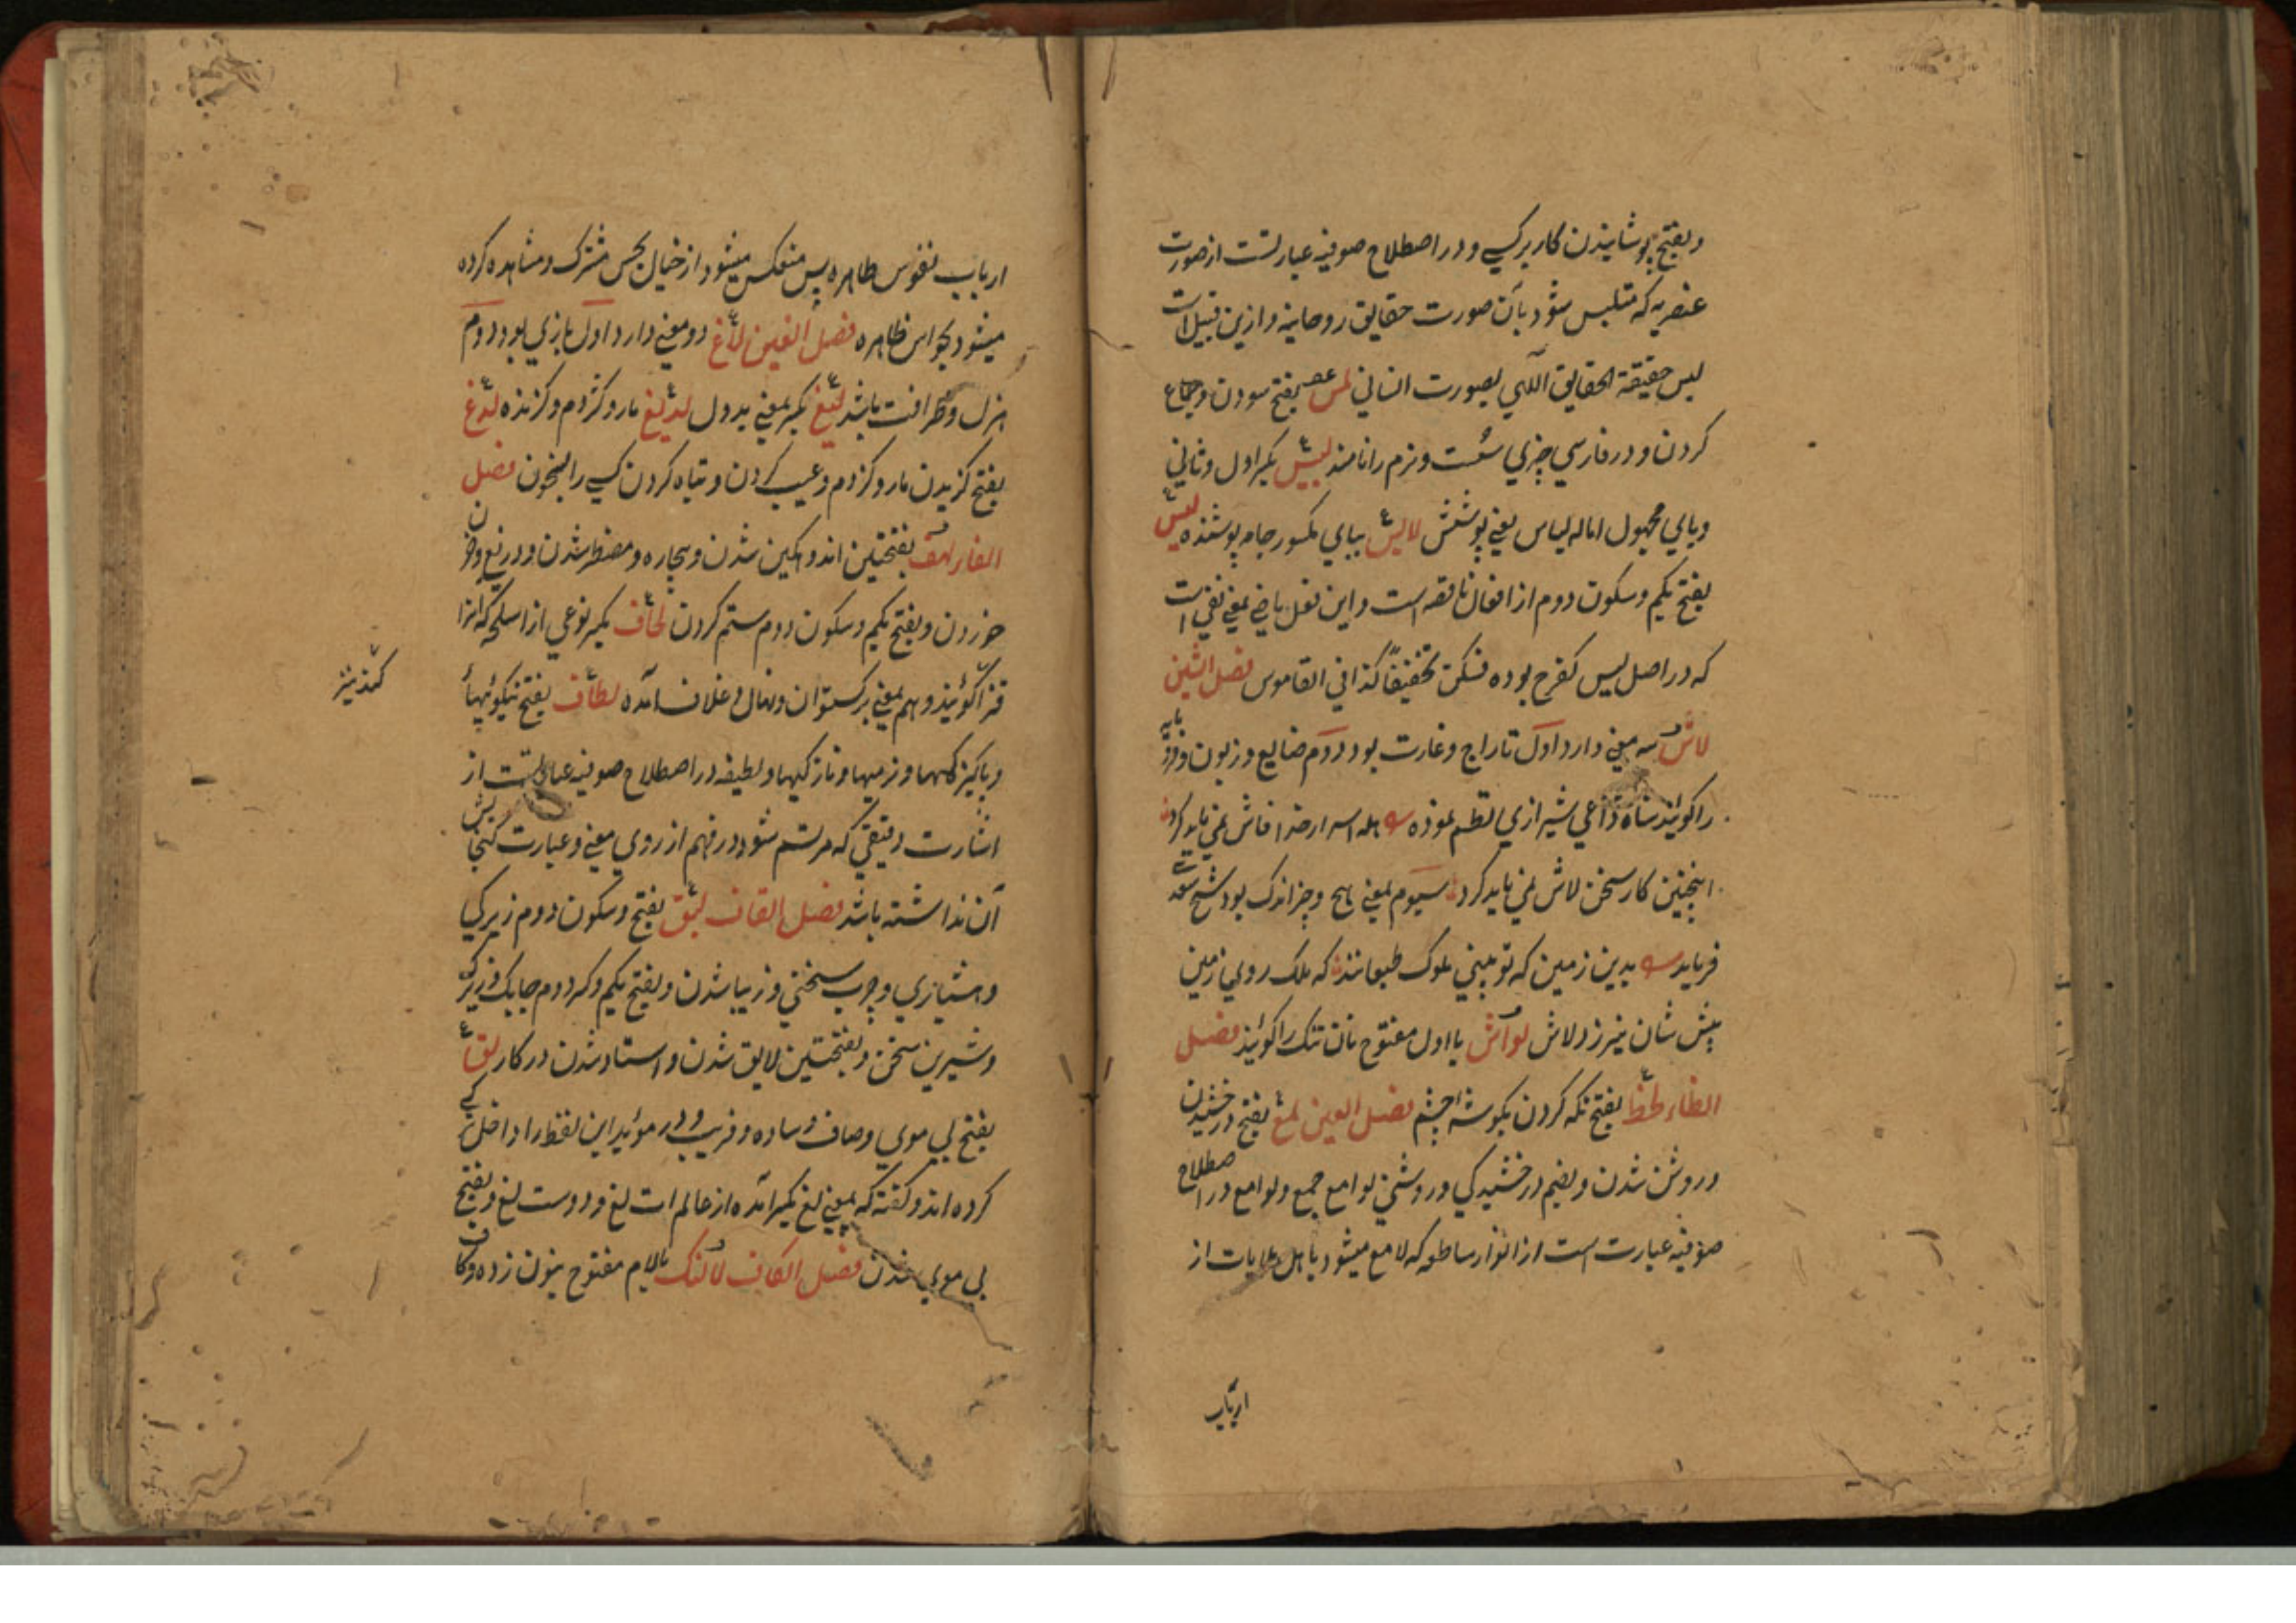 وبفتح پوشانیدن کار بر کسی و در اصطلاح صوفیه عبارتست از صورت
عنصریه که متلبس شود بآن صورت حقایق روحانیه و ازین قبیل است
لبس حقیقة الحقایق اللهی بصورت انسانی لمس بفتح سودن و جماع
کردن و در فارسی چیزی سست و نرم را نامند لبیس بکسر اول و ثانی
ویای مجهول اماله لباس یعنی پوشش لابس ببای مکسور جامه پوشنده لیس
بفتح یکم وسکون دوم از افعال ناقصه است و این فعل ماضی بمعنی نفی است
که در اصل لیس کفرح بوده فسکن تخفیفاً کذا فی القاموس فصل الشین
لاش سه معنی دارد اول تاراج و غارت بود دوم ضایع و زبون وفرومایه
را گویند شاه داعی شیرازی نظم نموده همه اسرار خدا فاش نمی باید کرد
اینچنین کار سخن لاش نمی باید کرد سیوم بمعنی هیچ و چیز اندک بود شیخ سعدی
فرماید بدین زمین که تو بینی ملوک طبعانند که ملک روی زمین
پیش شان نیرزد لاش لواش با اول مفتوح نان تنک را گویند فصل
الظاء لحظ بفتح نکه کردن بکوشه چشم فصل العین لمع بفتح درخشیدن
و روشن شدن و بضم درخشیدگی و روشنی لوامع جمع ولوامع در اصطلاح
صوفیه عبارت است از انوار ساطعه که لامع میشود باهل بدایات از
ارباب
ارباب نفوس طاهره پس منعکس میشود از خیال بحس مشترک و مشاهده کرده
میشود بحواس ظاهره فصل الغین لاغ دو معنی دارد اول بازی بود دوم
هزل و ظرافت باشد لیغ بکسر بمعنی بددل لدیغ مار و کژدم و گزنده لدغ
بفتح گزیدن مار و کژدم و عیب کردن و تباه کردن کسی را بسخن فصل
الفاء لهف بفتحتین اندوهکین شدن و بیچاره و مضطر شدن و دریغ و حزن
خوردن و بفتح یکم و سکون دوم ستم کردن لحاف بکسر نوعی از اسلحه که انرا
قزاگویند و هم بمعنی برکستوان و نهال و غلاف آمده لطاف بفتح نیکوئیها
و پاکیزکیها و نرمیها و نازکیها و لطیفه در اصطلاح صوفیه عبارتست از
اشارت دقیقی که مرتسم شود در فهم از روی معنی و عبارت کنجایش
آن نداشته باشد فصل القاف لبق بفتح و سکون دوم زیرکی
و هشیاری و چرب سخنی و زیبا شدن و بفتح یکم و کسر دوم چابک و زیرک
و شیرین سخن و بفتحتین لایق شدن و استاد شدن در کار لق
بفتح بی موی و صاف و ساده و فریب و در مؤید این لفظ را داخل
کرده اند و گفته که بمعنی لغ بکسر آمده از عالم است لغ و دوست لغ و بفتح
بی موی شدن فصل الکاف لانک بالام مفتوح بنون زده و کاف